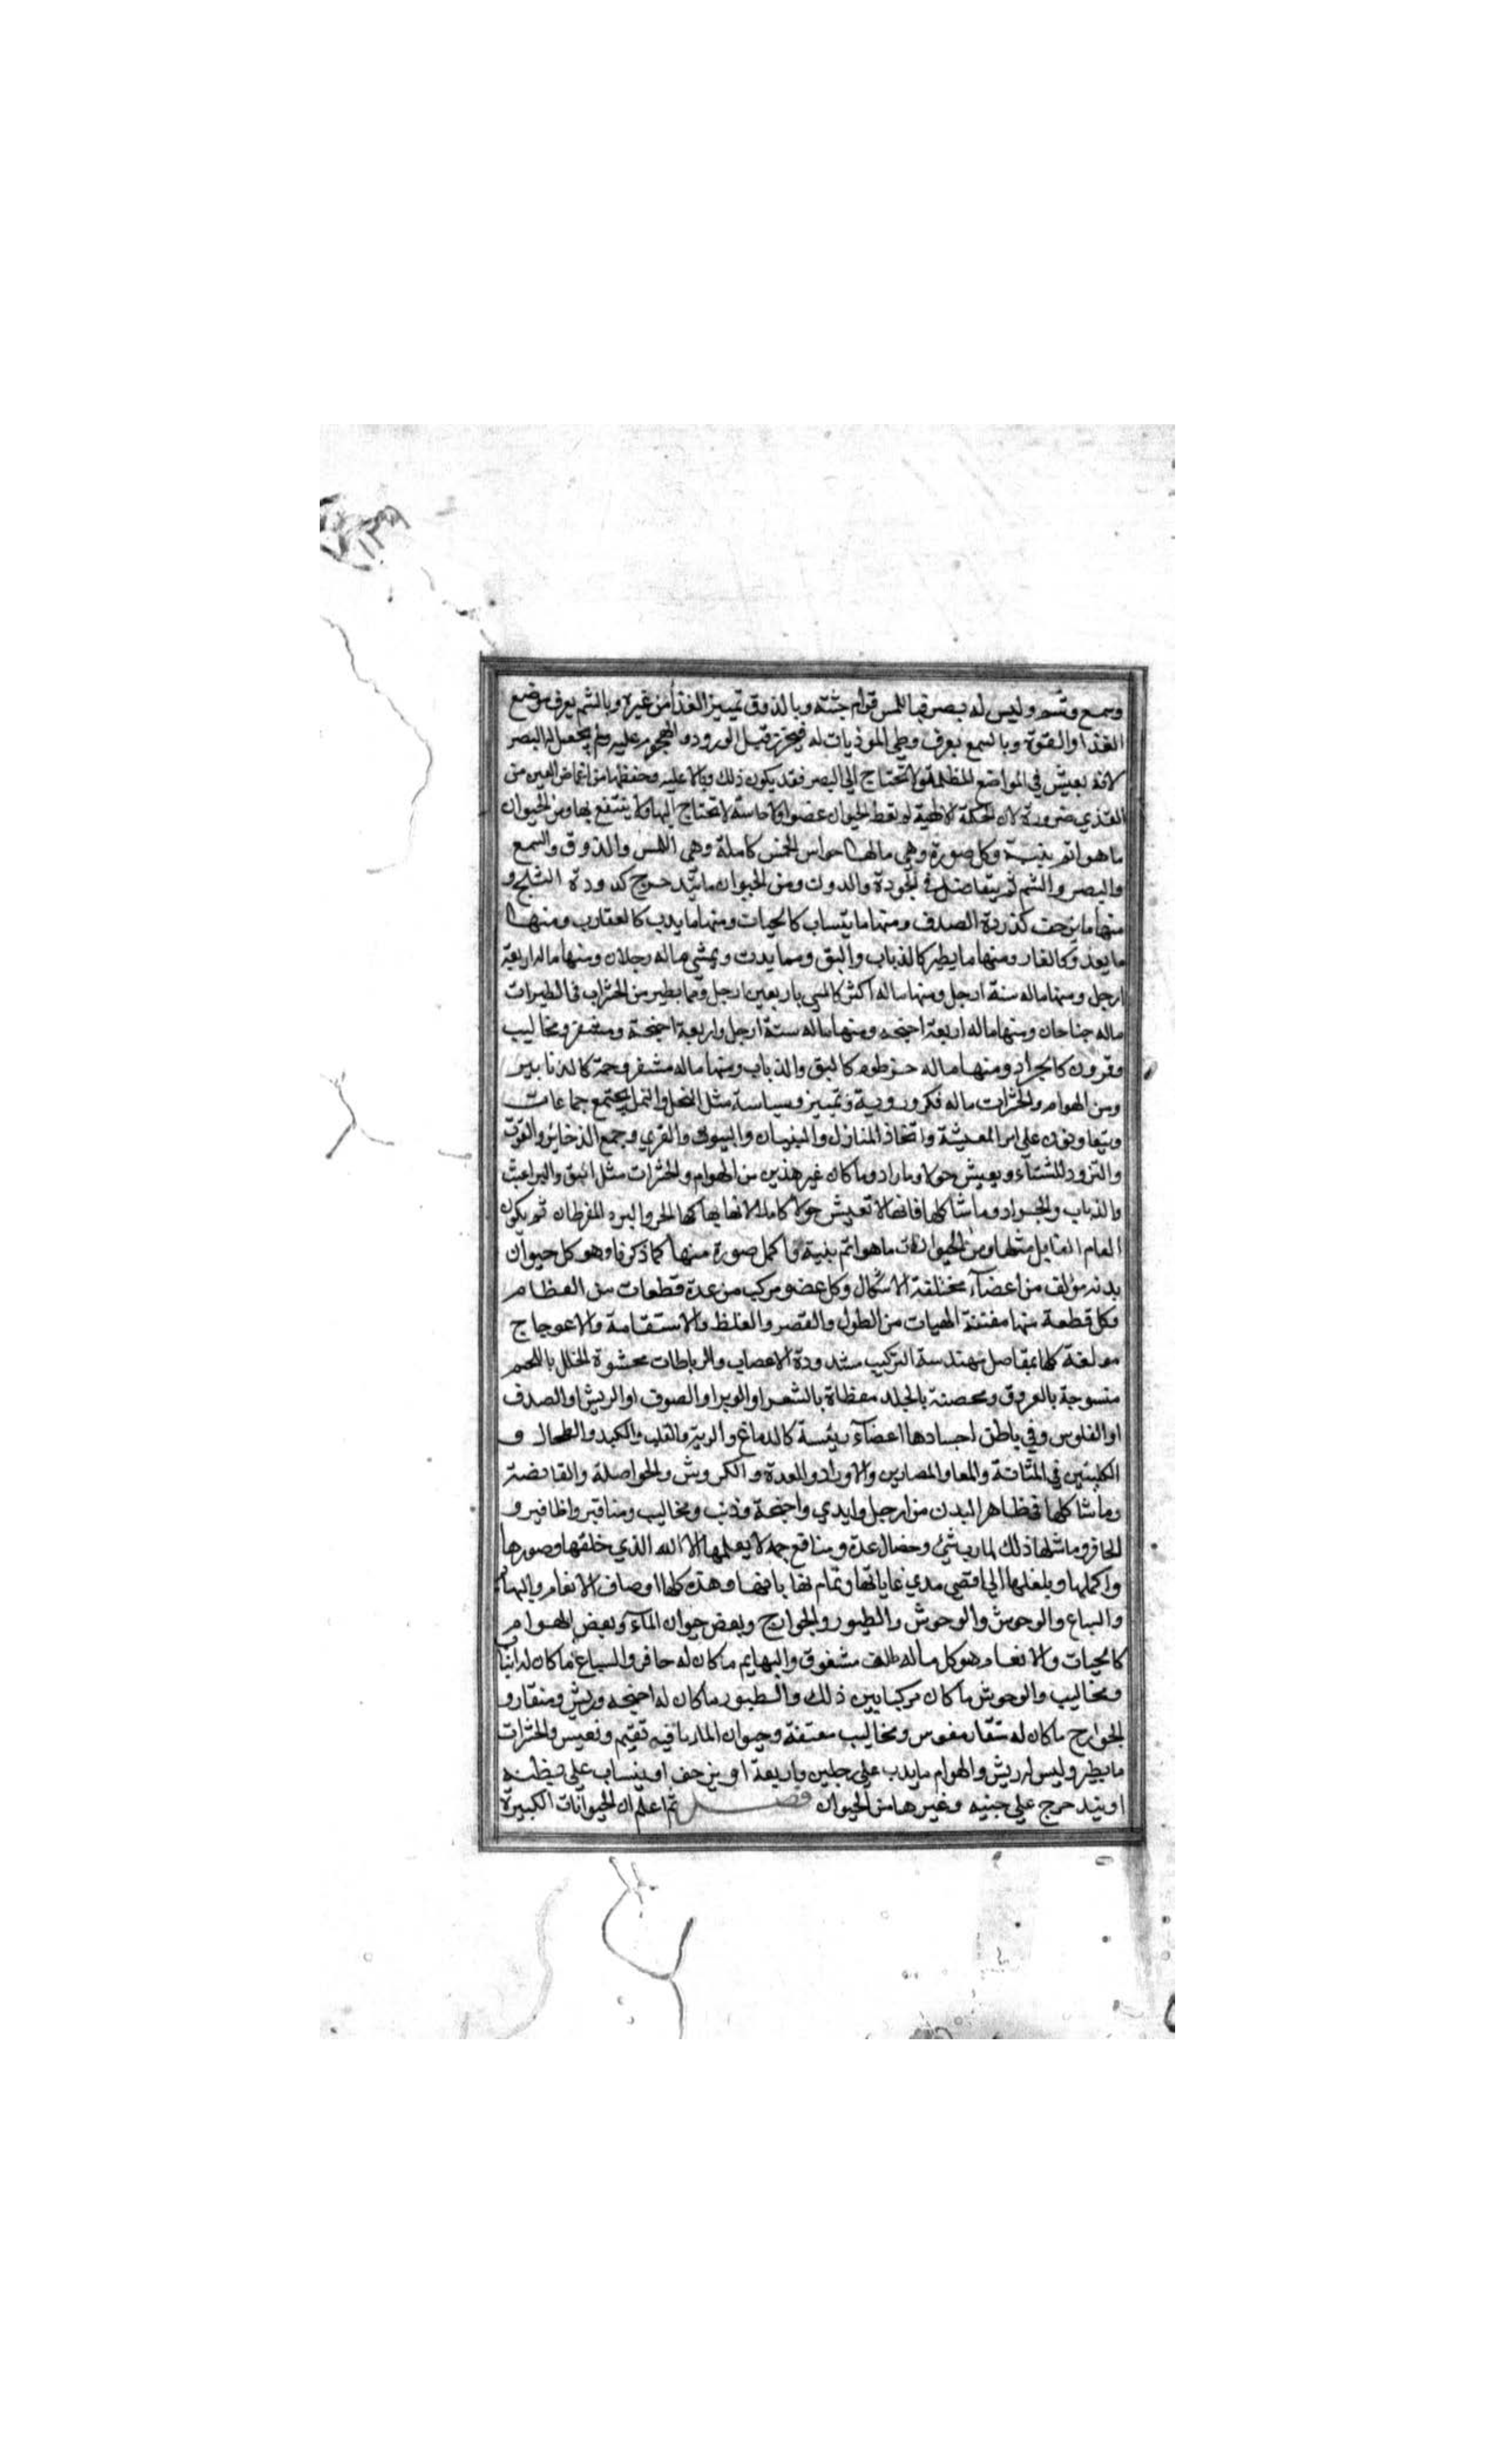 وسمع وشم وليس له بصر فباللمس قوام جثته وبالذوق تمييز الغذا من غيره وبالشم يعرف موضع
الغذا والقوة وبالسمع يعرف وطي الموذيات له فيحرز قبل الورود والهجوم عليه ولم يجعل له البصر
لانه يعيش في المواضع المظلمة ولا تحتاج الى البصر فقد يكون ذلك وبالا عليه وحفظها من اغماض العين من
القذي ضرورة لان الحكمة الالهية لم تعط الحيوان عضوا ولا حاسة لا تحتاج اليها ولا ينتفع بها ومن الحيوان
ما هو اتم بنية وكل صورة وهي ما لها حواس الخمس كاملة وهي اللمس والذوق والسمع
والبصر والشم ثم يتفاضل في الجودة والدون ومن الحيوان ما يتدحرج كدودة الثلج و
منها ما يزحف كذردة الصدف ومنها ما ينساب كالحيات ومنها ما يدب كالعقارب ومنها
ما يعدو كالفار ومنها ما يطير كالذباب والبق ومما يدب ويمشي ما له رجلان ومنها ما له اربعة
ارجل ومنها ما له ستة ارجل ومنها ما له اكثر كالمسي باربعين ارجل ومما يطير من الحشرات في الطيرات
ما له جناحان ومنها ما له اربعة اجنحه ومنها ما له ستة ارجل واربعة اجنحة ومشفر ومخاليب
وقرون كالجراد ومنها ما له خرطوم كالبق والذباب ومنها ما له مشفر وحمة كالدنابير
ومن الهوام والحشرات ما له فكر وروية وتمييز وسياسة مثل النحل والنمل يجتمع جماعات
ويتعاونون على امر المعيشة واتخاذ المنازل والبنيان والبيوت والقري وجمع الذخاير والقوت
والتزود للشتاء ويعيش حولا وما زاد وما كان غير هذين من الهوام والحشرات مثل البق والبراغيث
والذباب والجراد وما شاكلها فانها لا تعيش حولا كاملا لانها يهلكها الحر والبرد المفرطان ثم يكون
العام القابل مثلها ومن الحيوانات ما هو اتم بنية واكمل صورة منها كما ذكرنا وهو كل حيوان
بدنه مؤلف من اعضآء مختلفة الاشكال وكل عضو مركب من عدة قطعات من العظام
وكل قطعة منها مفتنة الهيات من الطول والقصر والغلظ والاستقامة والاعوجاج
مولفة كلها بمفاصل مهندسة التركيب مشدودة الاعصاب والرباطات محشوة الخلل باللحم
منسوجة بالعروق ومحصنة بالجلد مغطاة بالشعر او الوبر او الصوف او الريش او الصدف
او الفلوس وفي باطن اجسادها اعضآء رئيسة كالدماغ والرية والقلب والكبد والطحال و
الكليتين في المثانة والمعا والمصارين والاوراد والمعدة والكروش والحواصلة والقابضة
وما شاكلها في ظاهر البدن من ارجل وايدي واجنحة وذنب ومخاليب ومناقير واظافير و
الحافر وما شاكلها ذلك لمارب شتى وخصال عدة ومنافع جمه لا يعلمها الا الله الذي خلقها وصورها
واكملها وبلغلها الى اقصي مدي غاياتها وتمام نهاياتها وهذه كلها اوصاف الانعام والبهايم
والسباع والوحوش والوحوش والطيور والجوارح وبعض حيوان المآء وبعض الهوام
كالحيات والانعام هو كل ما له ظلف مشقوق والبهايم ما كان له حافر والسباع ما كان له انياب
ومخاليب والوحوش ما كان مركبا بين ذلك والطيور ما كان له اجنحه وريش ومنقار و
الجوارح ما كان له منقار مقوس ومخاليب معتفة وحيوان الماء ما فيه تقيم وتعيس والحشرات
ما يطير وليس له ريش والهوام ما يدب على رجلين واربعة او يزحف او ينساب على
او يتدحرج على جنبيه وغيرها من الحيوان فصل ثم اعلم ان الحيوانات الكبيرة